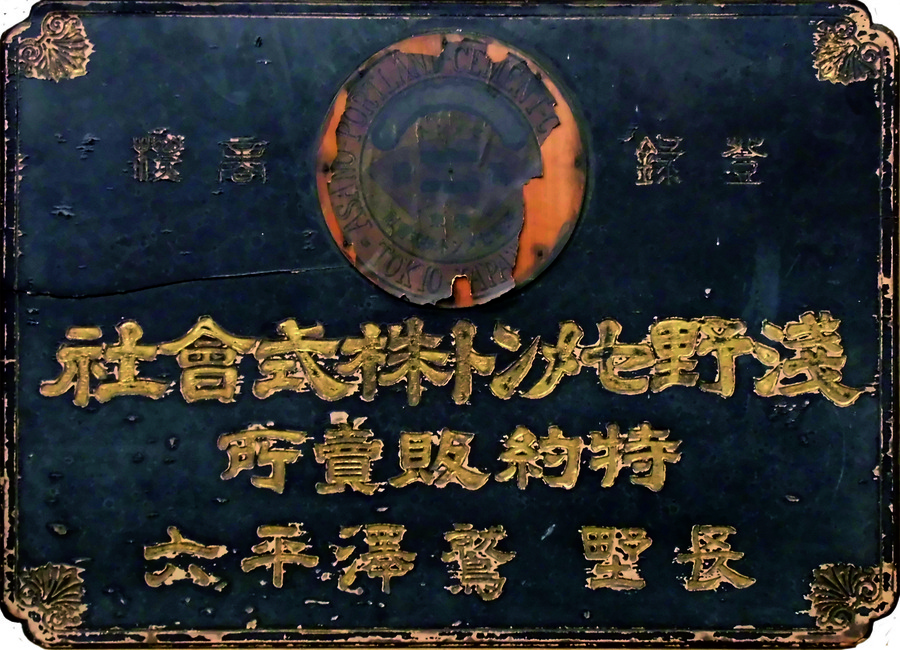 ASANO PORTLAND CEMENT C
TOKIO JAPAN
登錄 商標
淺野セメント株式會社
特約販賣所
長野 鷲澤平六